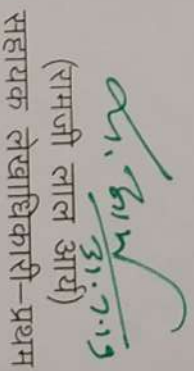 31.7.19
(रामजी लाल आर्य)
सहायक लेखाधिकारी-प्रथम